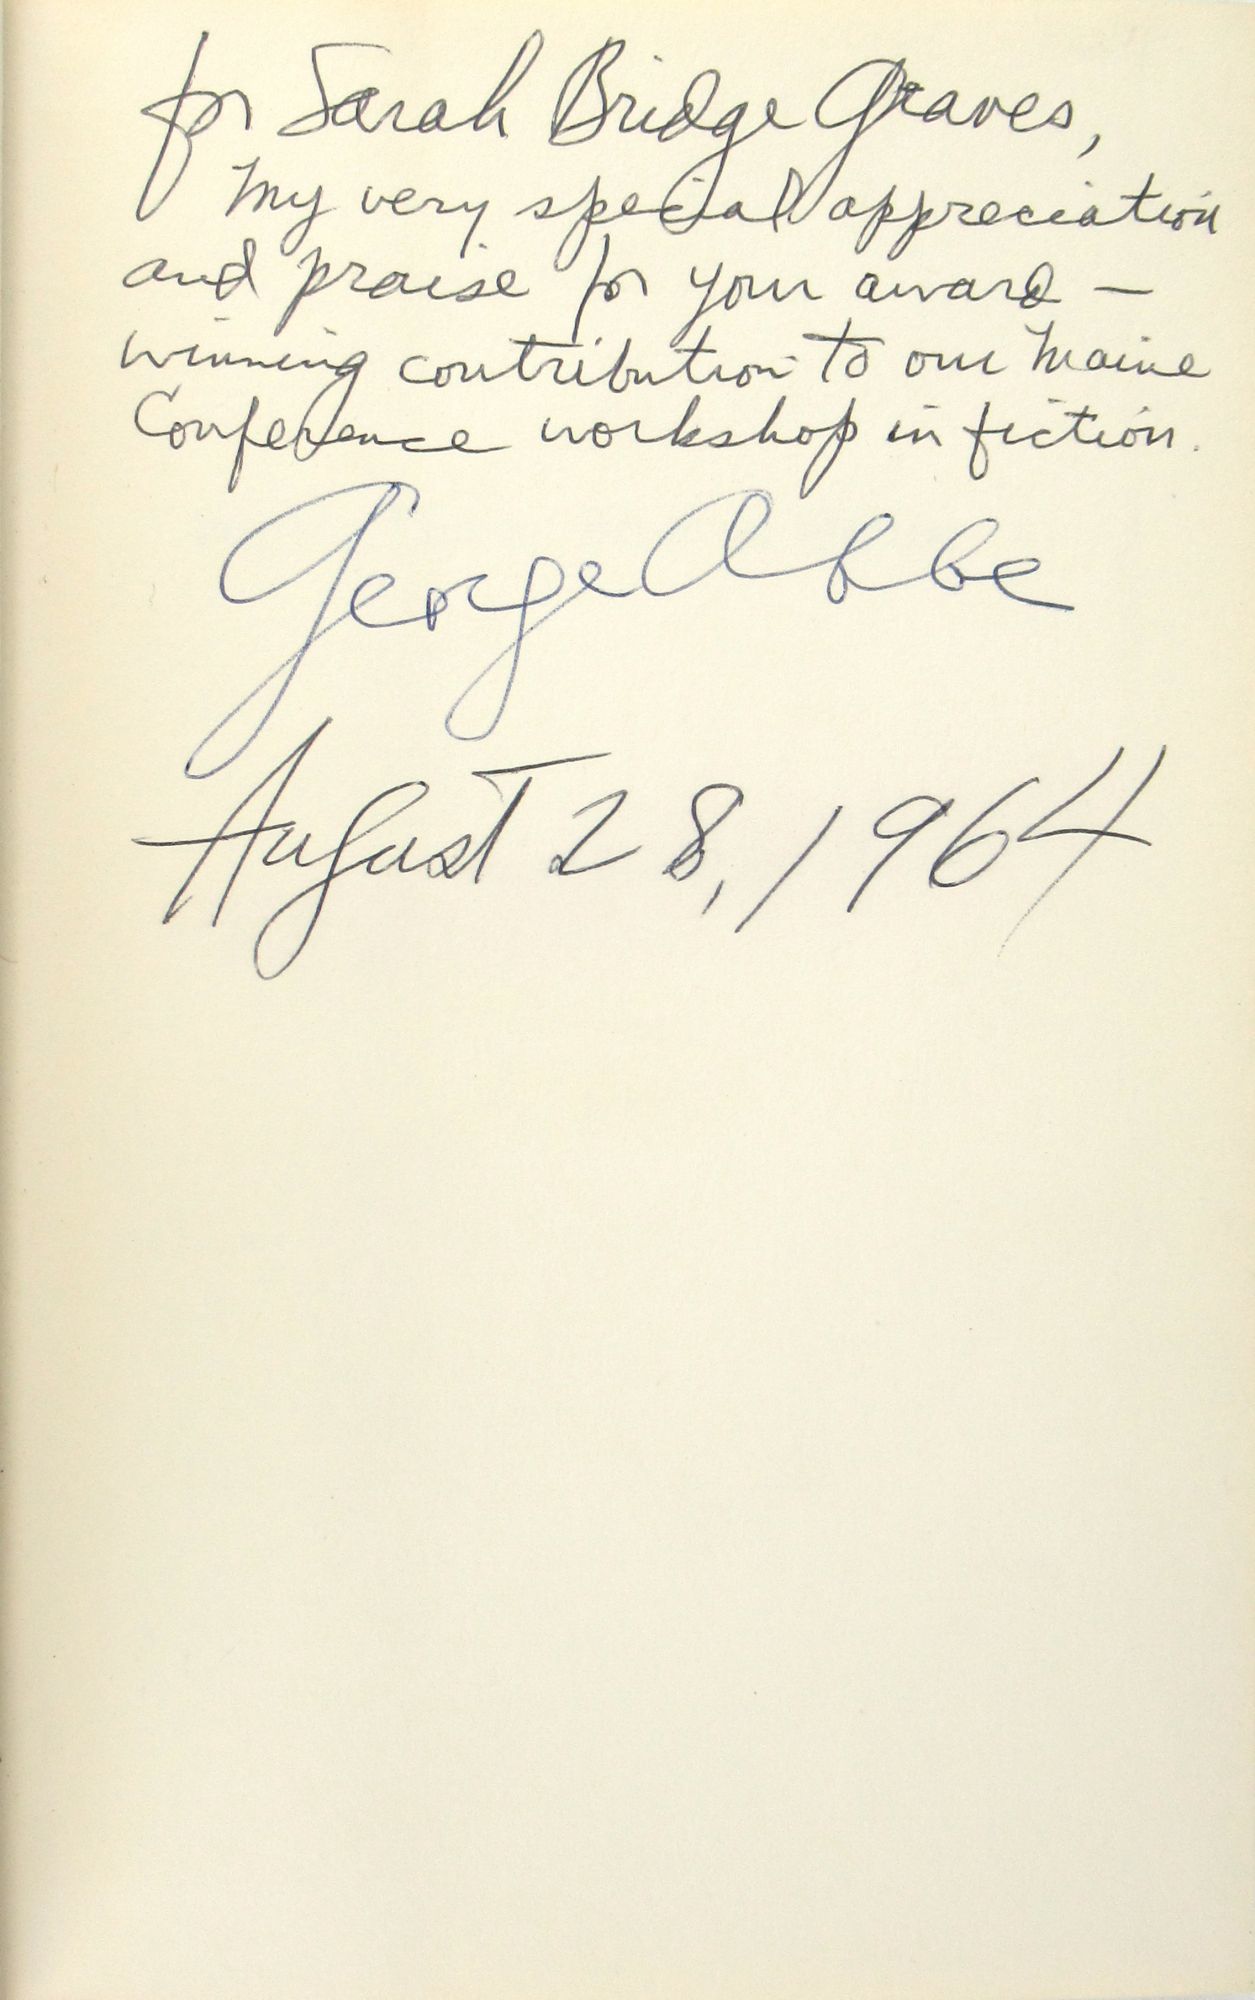 for Sarah Bridge Graves,
My very special appreciation
and praise for your award —
winning contribution to our Maine
Conference workshop in fiction.
George Abbe
August 28, 1964